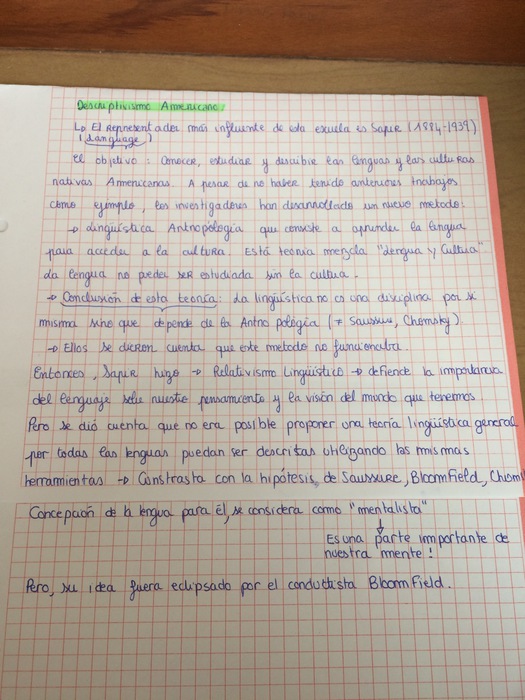 Descriptivismo Americano:
↳ El Representador más influente de esta escuela es Sapir (1884-1939)
(Language)
El objetivo : Conocer, estudiar y describir las lenguas y las culturas
nativas Americanas. A pesar de no haber tenido anteriores trabajos
como ejemplo, los investigadores han desarrollado un nuevo metodo:
→ Linguística Antropológia que consiste a aprender la lengua
para acceder a la cultura. Está teoría mezcla "Lengua y Cultura"
La lengua no puede ser estudiada sin la cultura.
→ Conclusión de esta teoría: La lingüística no es una disciplina por si
misma sino que depende de la Antropológia (≠ Saussure, Chomsky).
→ Ellos se dieron cuenta que este metodo no funcionaba.
Entonces, Sapir hizo → Relativismo Lingüístico → defiende la importancia
del lenguaje sobre nuestro pensamiento y la visión del mundo que tenemos
Pero se dió cuenta que no era posible proponer una teoría lingüística general
por todas las lenguas puedan ser descritas utilizando las mismas
herramientas → Constrasta con la hipótesis de Saussure, Bloomfield,
Concepción de la lengua para él, se considera como "mentalista"
↓
Es una parte importante de
nuestra mente !
Pero, su idea fuera eclipsado por el conductista Bloomfield.